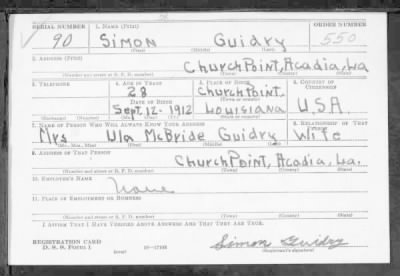 SERIAL NUMBER 1. NAME (Print) ORDER NUMBER
90 Simon Guidry 550
(First) (Middle) (Last)
2. ADDRESS (Print)
Church Point, Acadia, La
(Number and street or R. F. D. number) (Town) (County) (State)
3. TELEPHONE 4. AGE IN YEARS 5. PLACE OF BIRTH 6. COUNTRY OF CITIZENSHIP
28 Church Point.
DATE OF BIRTH (Town or county)
Sept. 12 - 1912 Louisiana U.S.A.
(Exchange) (Number) (Mo.) (Day) (Yr.) (State or country)
7. NAME OF PERSON WHO WILL ALWAYS KNOW YOUR ADDRESS 8. RELATIONSHIP OF THAT PERSON
Mrs Ula McBride Guidry Wife
(Mr., Mrs., Miss) (First) (Middle) (Last)
9. ADDRESS OF THAT PERSON
Church Point, Acadia, La.
(Number and street or R. F. D. number) (Town) (County) (State)
10. EMPLOYER'S NAME
None
11. PLACE OF EMPLOYMENT OR BUSINESS
(Number and street or R. F. D. number) (Town) (County) (State)
I AFFIRM THAT I HAVE VERIFIED ABOVE ANSWERS AND THAT THEY ARE TRUE.
REGISTRATION CARD
D. S. S. Form 1 (over) 16-17105 Simon Guidry
(Registrant's signature)